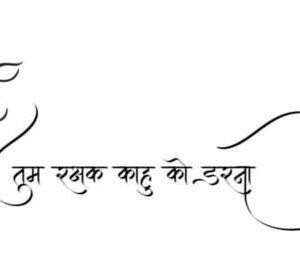 तुम रक्षक काहु को डरना